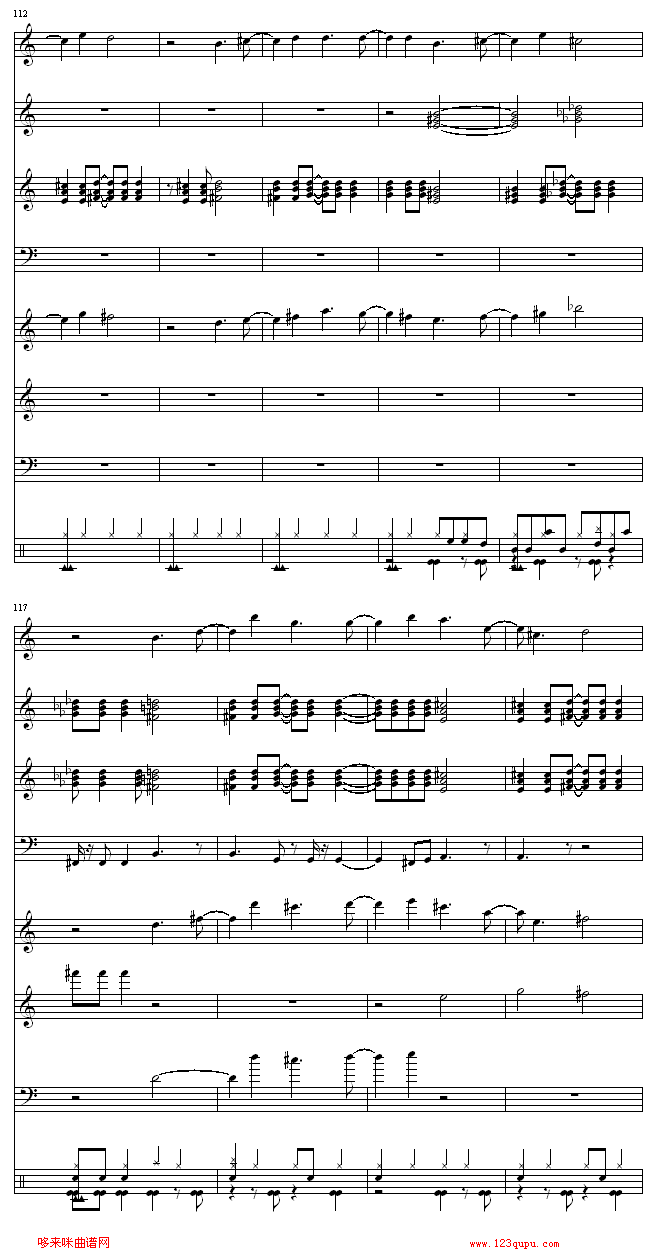 112
117
哆来咪曲谱网
www.123qupu.com